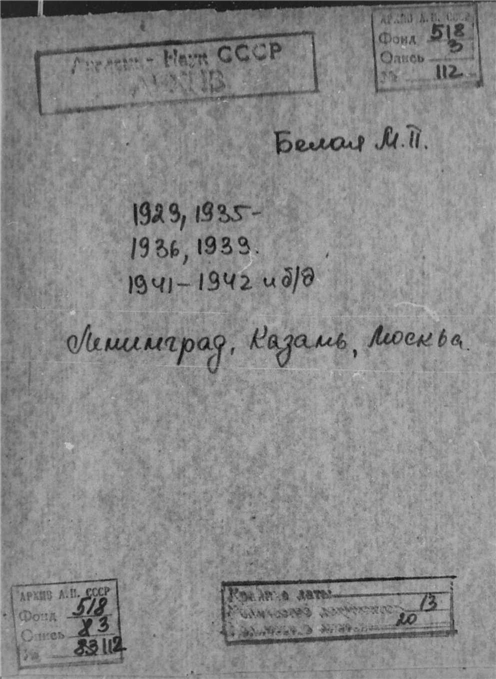 Академия Наук СССР
АРХИВ
АРХИВ А.Н. СССР
Фонд 518
Опись 3
№ 112
Белая М.П.
1929, 1935-
1936, 1939.
1941-1942 и б/д
Ленинград, Казань, Москва.
АРХИВ А.Н. СССР
Фонд 518
Опись 3
№ 112
Крайние даты
13
20